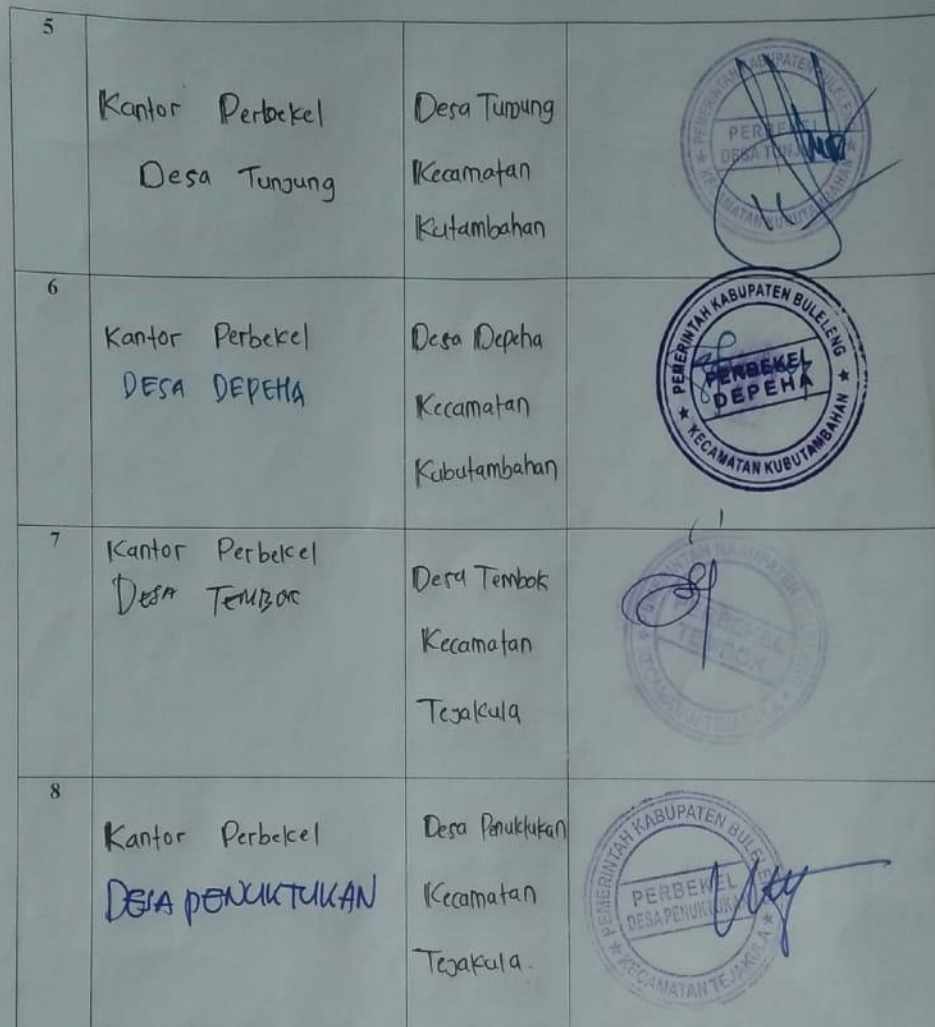 5
Kantor Perbekel
Desa Tunjung
Desa Tunjung
Kecamatan
Kutambahan
PEMERINTAH KABUPATEN BULELENG
PERBEKEL
DESA TUNJUNG
KECAMATAN KUBUTAMBAHAN
6
Kantor Perbekel
DESA DEPEHA
Desa Depeha
Kecamatan
Kubutambahan
PEMERINTAH KABUPATEN BULELENG
PERBEKEL
DEPEHA
KECAMATAN KUBUTAMBAHAN
7
Kantor Perbekel
DESA TEMBOK
Desa Tembok
Kecamatan
Tejakula
PERBEKEL
TEMBOK
KECAMATAN TEJAKULA
8
Kantor Perbekel
DESA PENUKTUKAN
Desa Penuktukan
Kecamatan
Tejakula.
PEMERINTAH KABUPATEN BULELENG
PERBEKEL
DESA PENUKTUKAN
KECAMATAN TEJAKULA